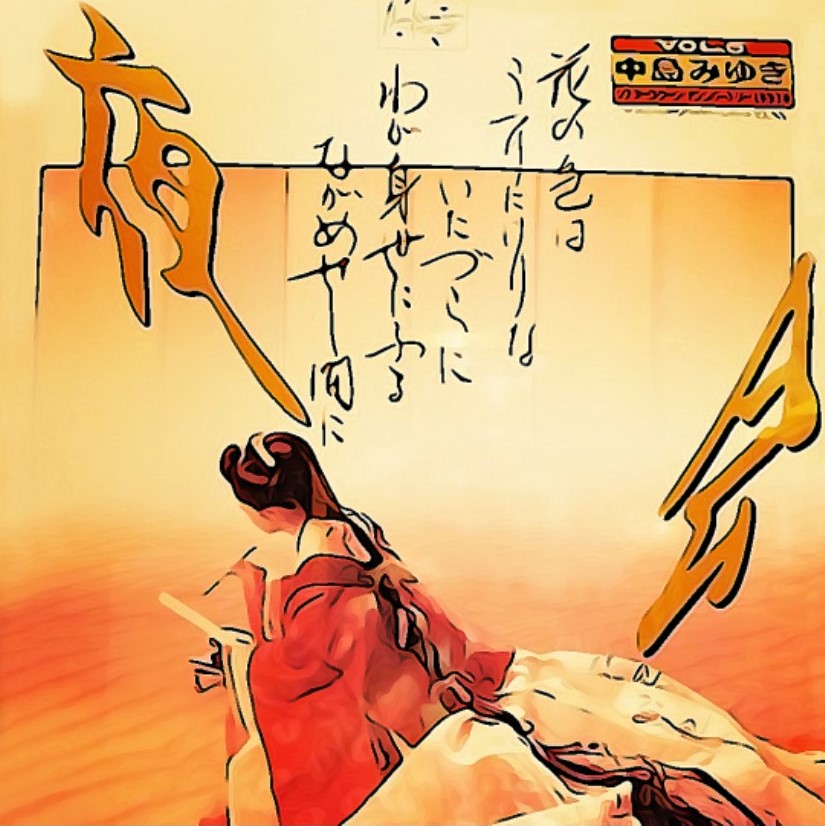 夜会
VOL.6
中島みゆき
花の色は
うつりにけりな
いたづらに
わが身世にふる
ながめせし間に